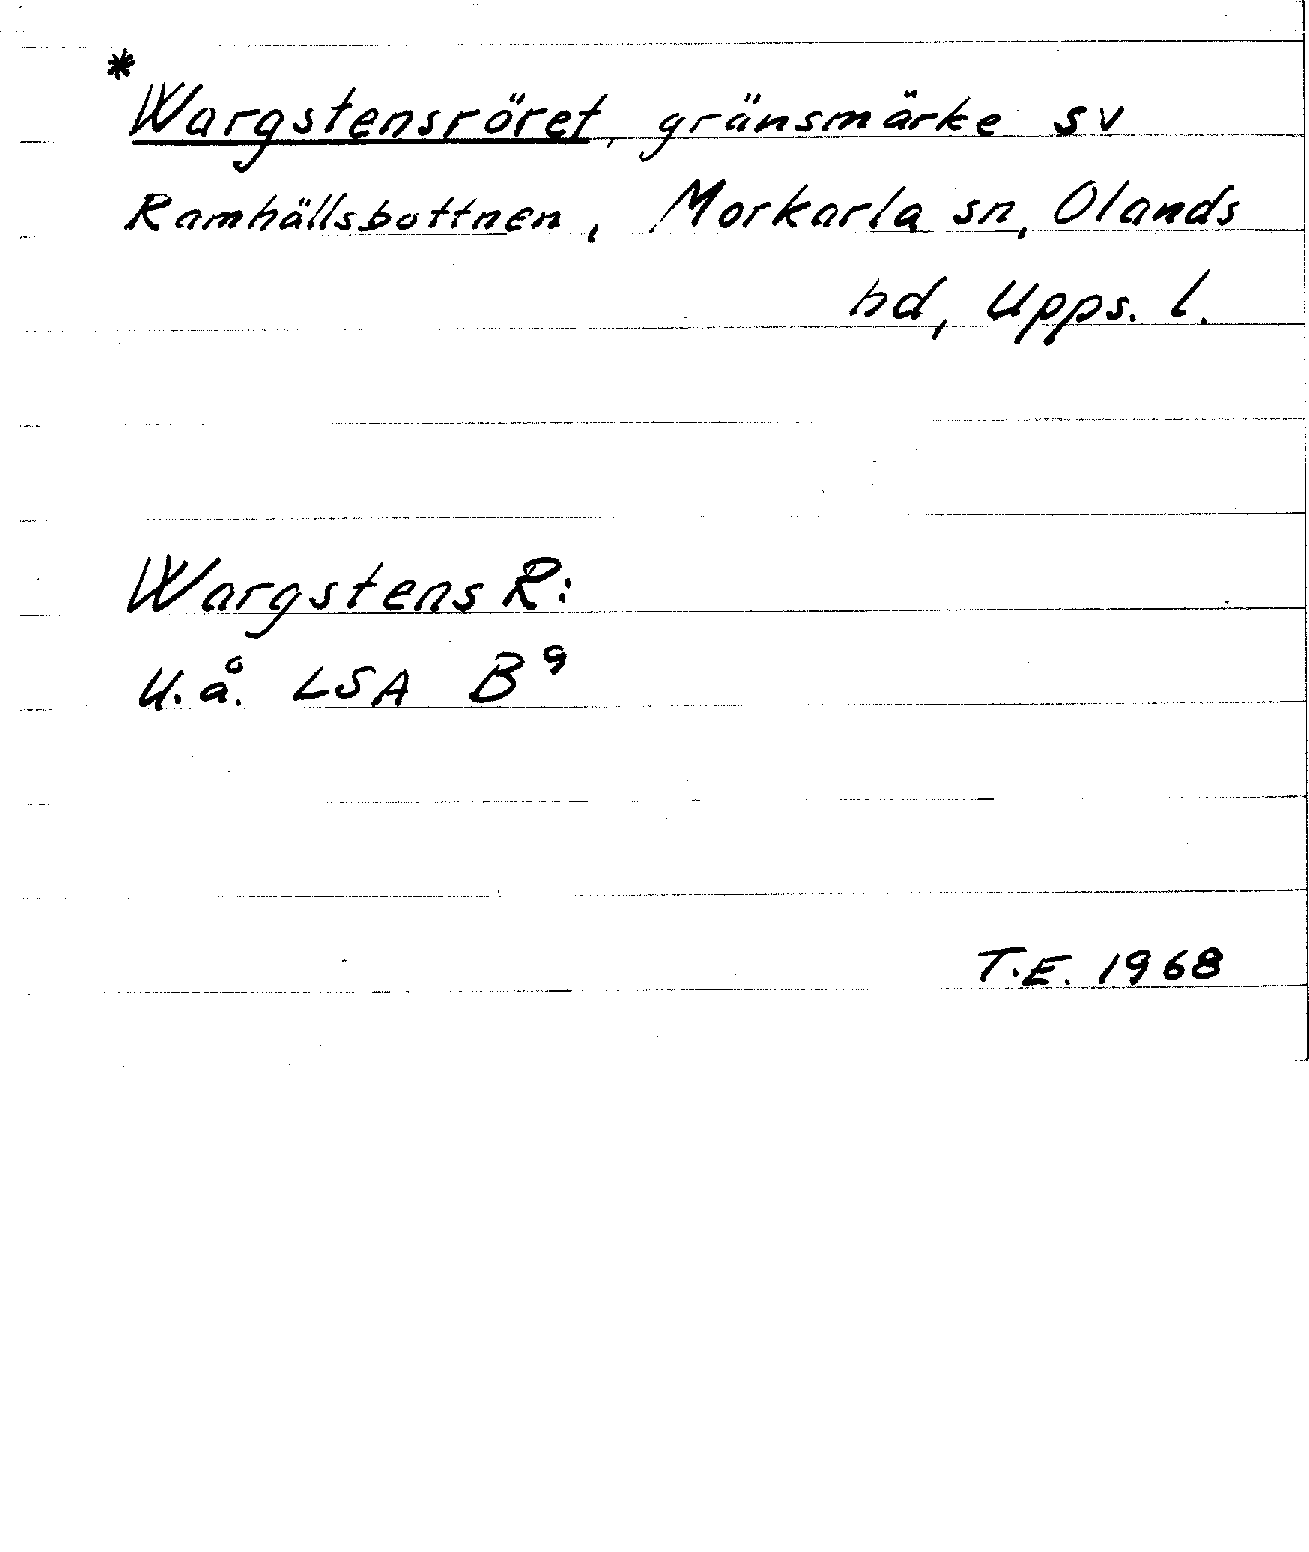 *Wargstensröret, gränsmärke sv
Ramhällsbottnen, Morkarla sn, Olands
hd, Upps. l.
Wargstens R:
U.å. LSA B⁹
T.E. 1968